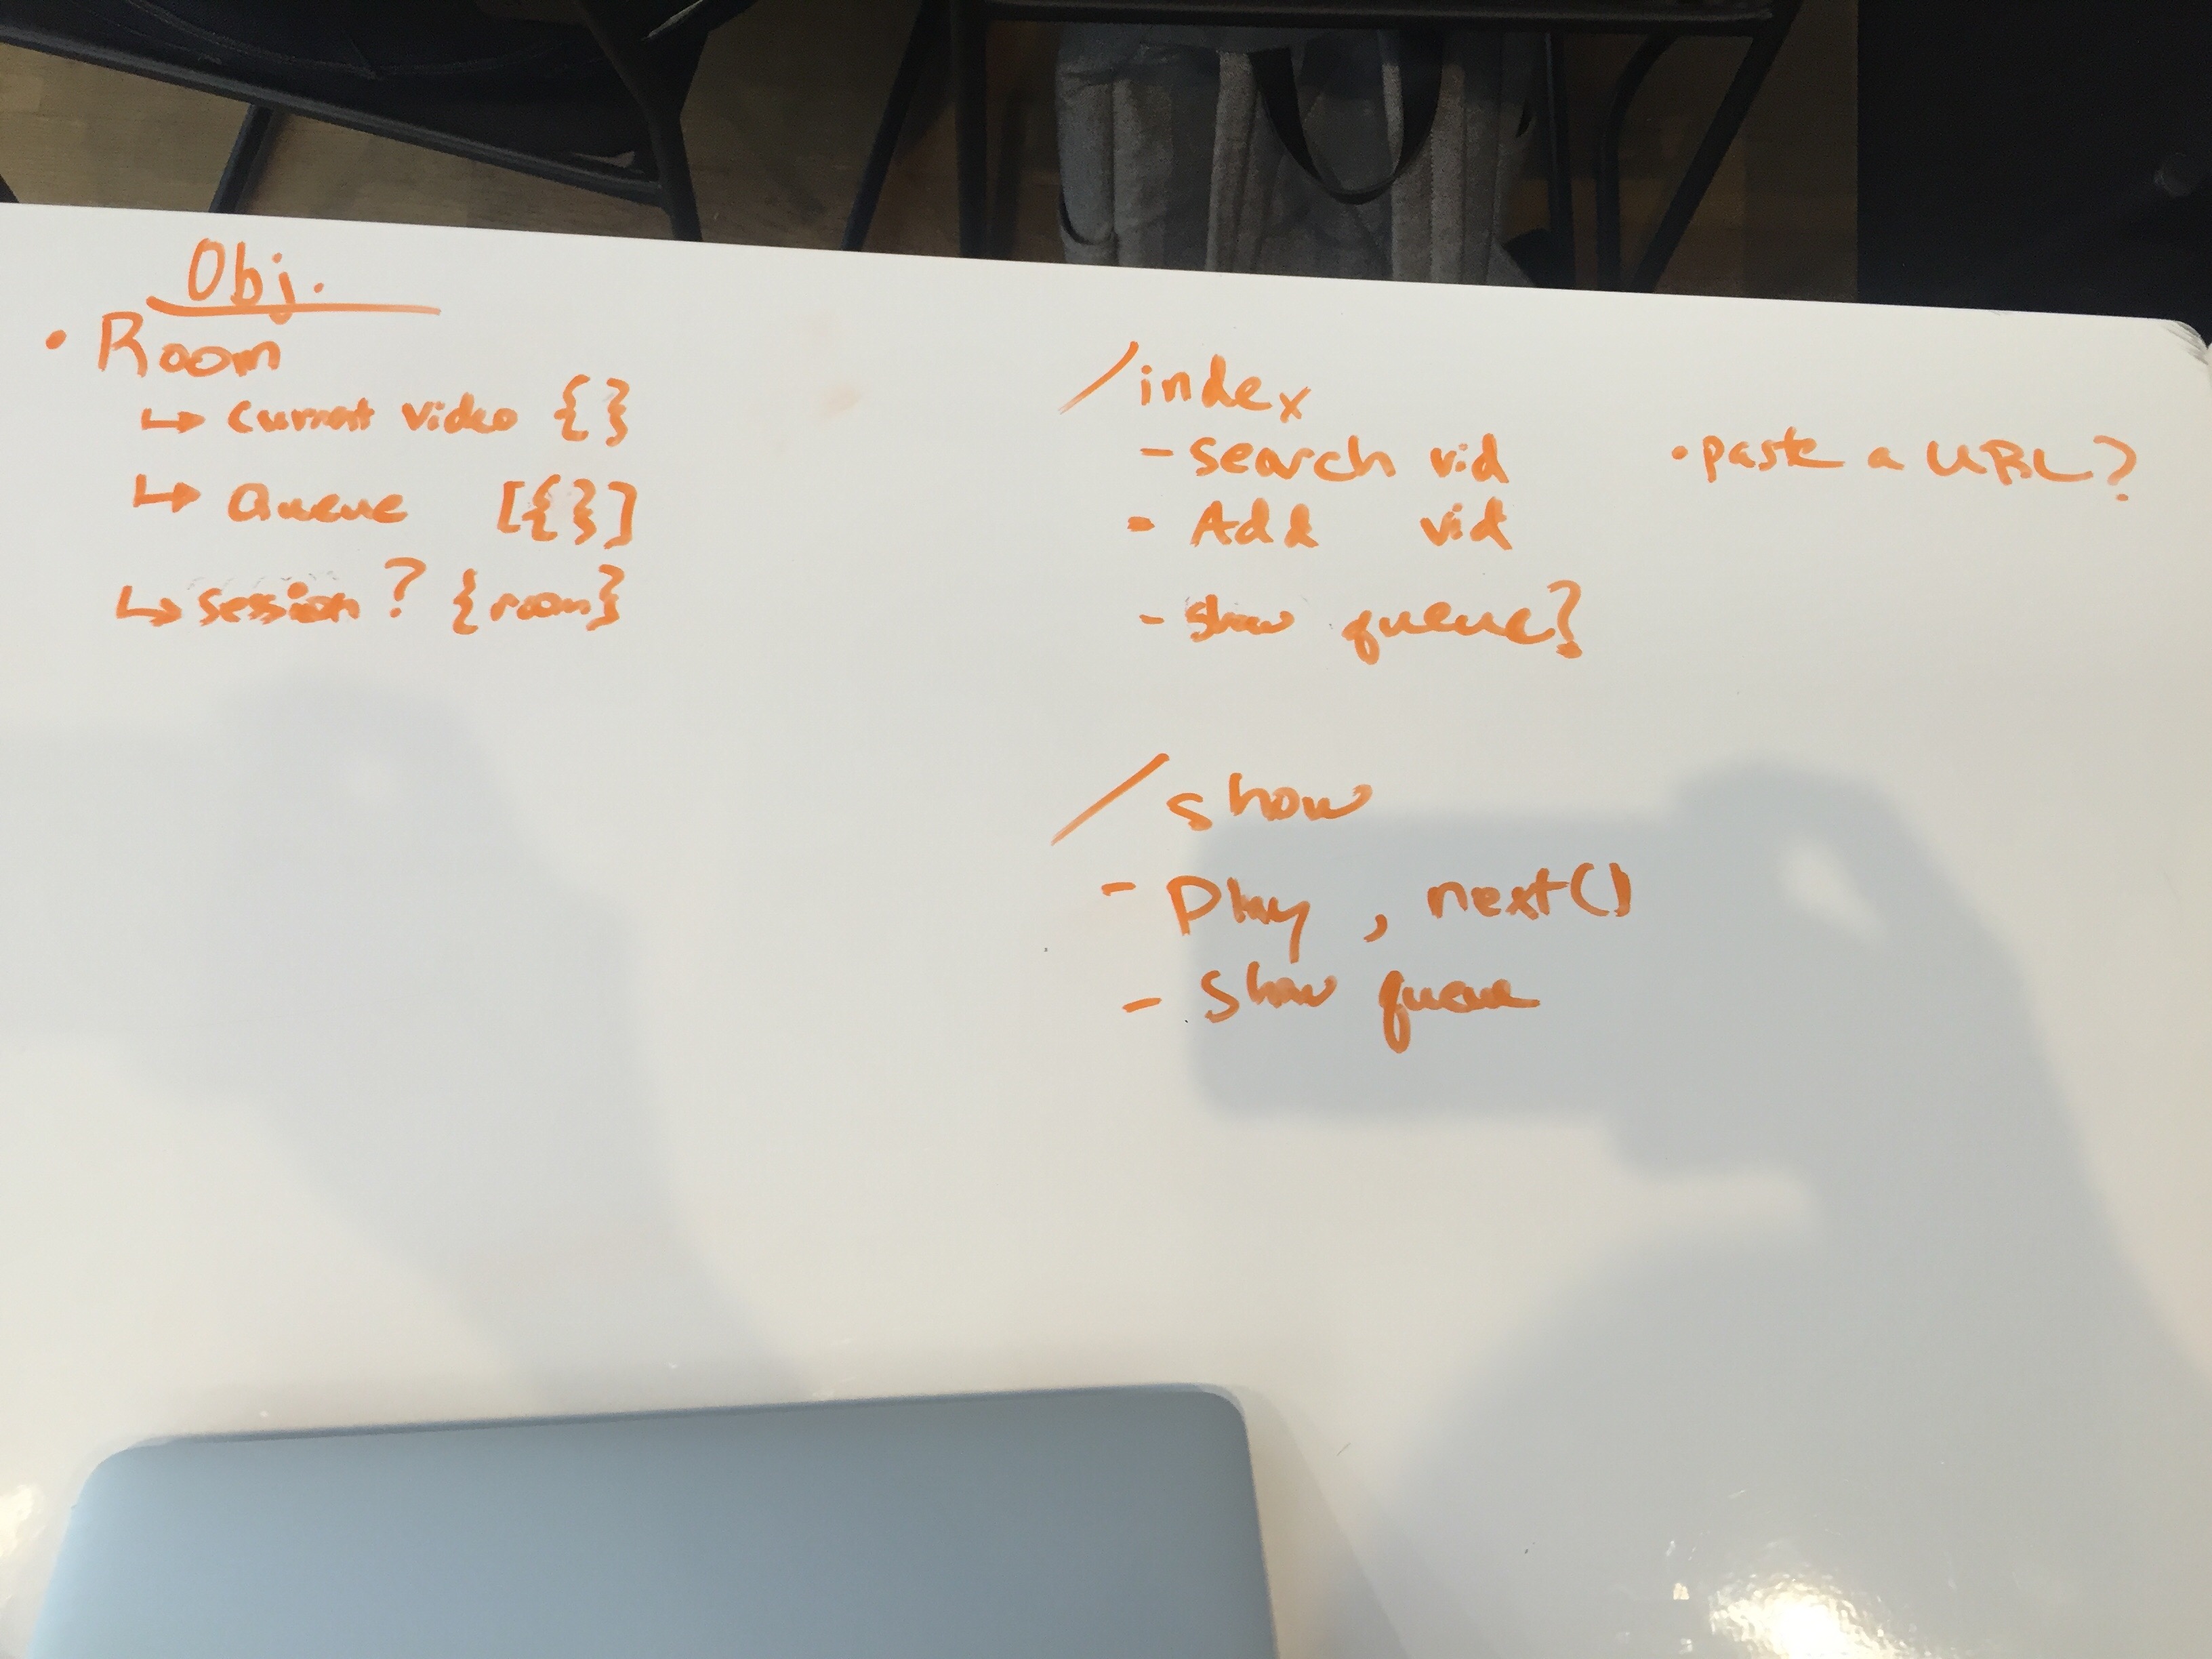 Obj.
• Room
↳ Current Video {}
↳ Queue [{}]
↳ Session? {room}
/index
- search vid
• paste a URL?
- Add vid
- show queue?
/show
- Play, next()
- Show queue